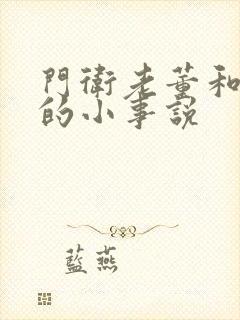 門衛老董和
的小事說
藍燕